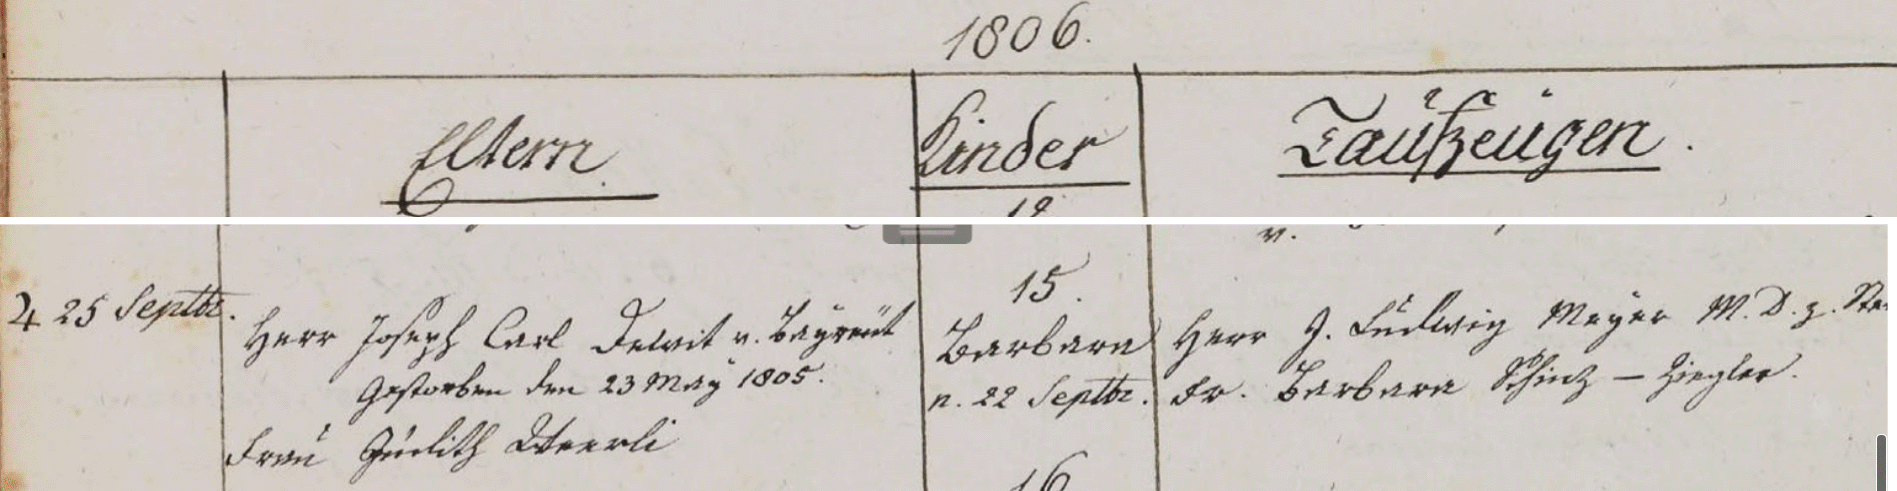 1806.
Eltern.
Kinder
Taufzeugen.
12
♃ 25 Septbr.
Herr Joseph Carl Dewit v. Bayreüt
Gestorben den 23 May 1805.
Frau Judith
15.
Barbara
n. 22 Septbr.
16
v.
Herr J. Ludwig Meyer M. D. z.
Fr. Barbara Schinz – Ziegler.